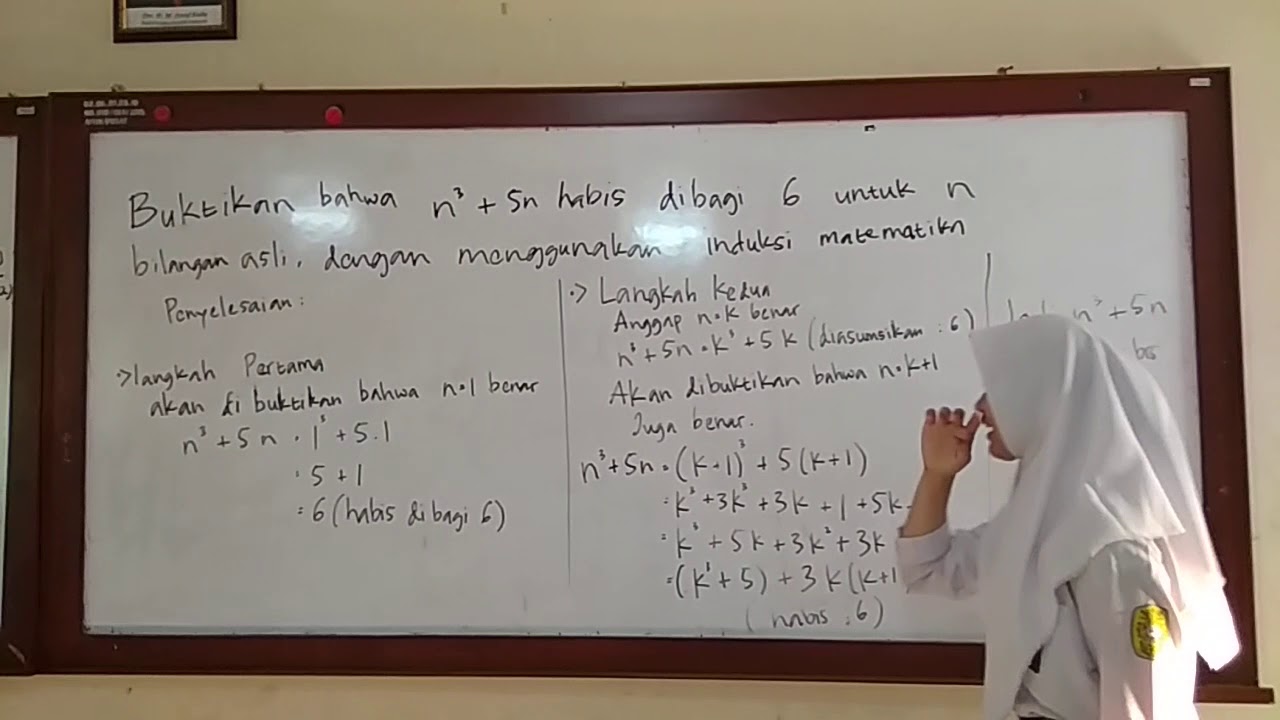 Buktikan bahwa n³ + 5n habis dibagi 6 untuk n
bilangan asli, dengan menggunakan induksi matematika
Penyelesaian :
-> langkah Pertama
akan di buktikan bahwa n=1 benar
n³ + 5n = 1³ + 5.1
= 5 + 1
= 6 (habis dibagi 6)
-> Langkah Kedua
Anggap n=k benar
n³ + 5n = k³ + 5k (diasumsikan : 6)
Akan dibuktikan bahwa n=k+1
Juga benar.
n³ + 5n = (k+1)³ + 5(k+1)
= k³ + 3k³ + 3k + 1 + 5k
= k³ + 5k + 3k² + 3k
= (k³ + 5) + 3k(k+1
(habis : 6)
n³ + 5n